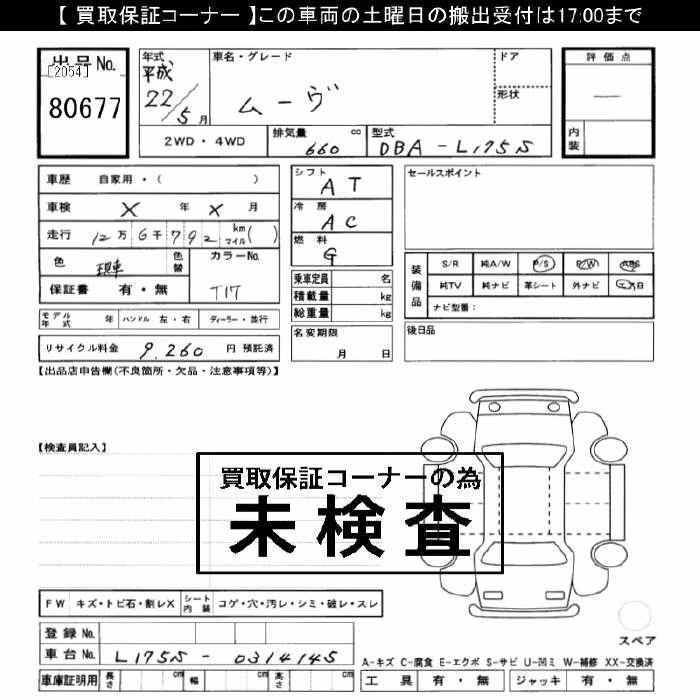 【 買取保証コーナー 】この車両の土曜日の搬出受付は17:00まで
出品No.
[2054]
80677
年式
平成
22/5月
車名・グレード
ムーヴ
ドア
形状
評価点
—
内装
2WD・4WD
排気量 660 cc
型式 DBA-L175S
車歴 自家用・( )
車検 X 年 X 月
走行 12万6千792 km マイル( )
色 現車 色替
カラーNo.
T17
保証書 有・無
モデル年式 年 ハンドル 左・右 ディーラー・並行
リサイクル料金 9,260 円 預託済
シフト AT
冷房 AC
燃料 G
乗車定員 名
積載量 kg
総重量 kg
名変期限
月 日
セールスポイント
装備品
S/R 純A/W P/S P/W ABS
純TV 純ナビ 革シート 外ナビ
ナビ型番：
後日品
【出品店申告欄(不良箇所・欠品・注意事項等)】
【検査員記入】
買取保証コーナーの為
未検査
FW キズ・トビ石・割レX シート内装 コゲ・穴・汚レ・シミ・破レ・スレ
登録No.
車台No. L175S - 0314145
車庫証明用 長さ cm 幅 cm 高さ cm
スペア
A-キズ C-腐食 E-エクボ S-サビ U-凹ミ W-補修 XX-交換済
工具 有・無 ジャッキ 有・無